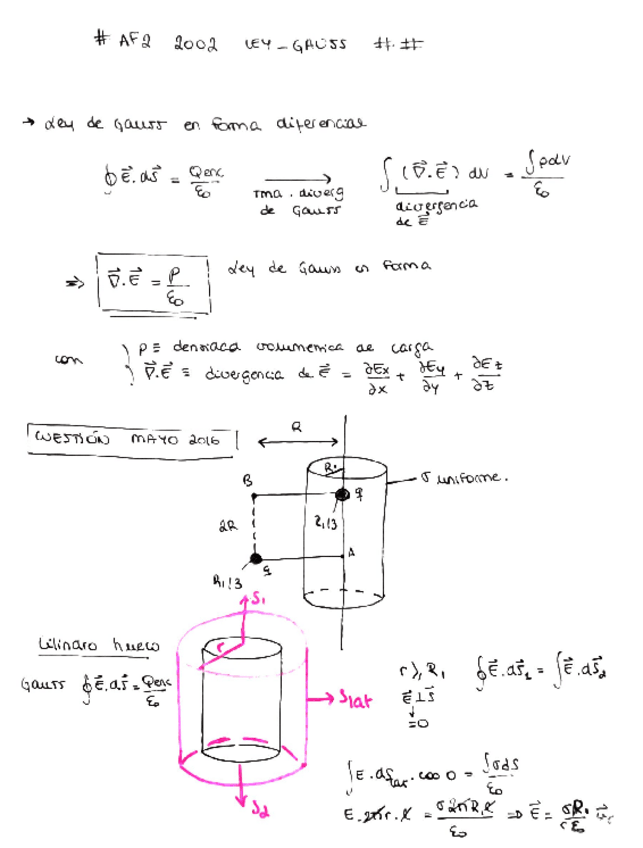 # AF2 2002 LEY_GAUSS #.#
→ Ley de Gauss en forma diferencial
∮ E⃗.dS⃗ = Qenc/ε₀ → Tma. diverg de Gauss ∫ (∇⃗.E⃗) dV = ∫ρdV/ε₀
divergencia de E⃗
⇒ ∇⃗.E⃗ = ρ/ε₀ Ley de Gauss en forma
con } ρ ≡ densidad volumetrica de carga
∇⃗.E⃗ ≡ divergencia de E⃗ = ∂Ex/∂x + ∂Ey/∂y + ∂Ez/∂z
CUESTIÓN MAYO 2016
R
R₁
σ uniforme.
B
q
2R
R₁/3
A
q
R₁/3
S₁
Cilindro hueco
r
Gauss ∮ E⃗.dS⃗ = Qenc/ε₀
Slat
r ≥ R₁ ∮ E⃗.dS⃗₁ = ∫ E⃗.dS⃗₂
E⃗ ⊥ S⃗
↓
=0
S₂
∫ E.dSlat. cos 0 = ∫σds/ε₀
E. 2πr. ℓ = σ2πR₁ℓ/ε₀ ⇒ E⃗ = σR₁/rε₀ u⃗r